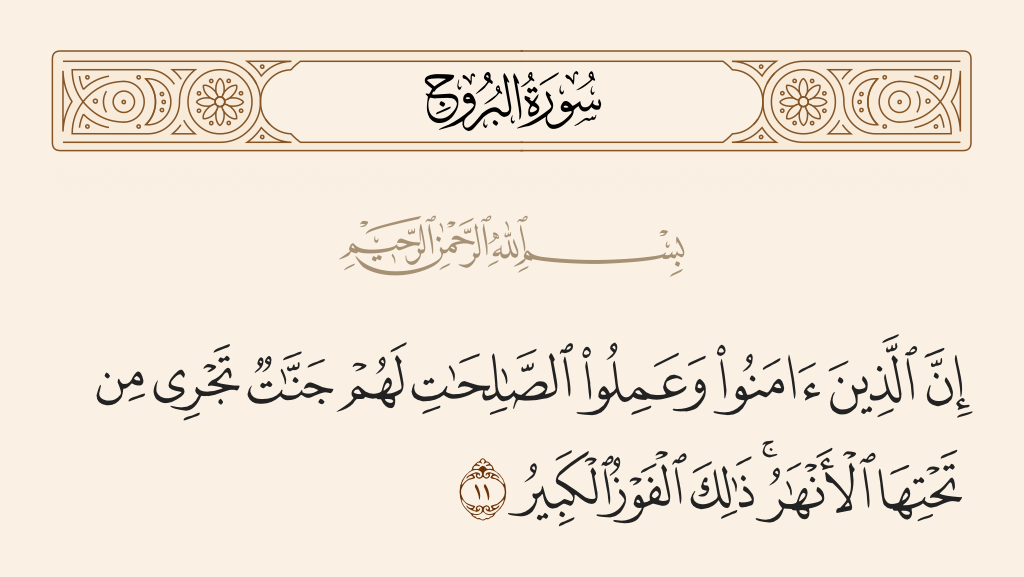 سُورَةُ البُرُوجِ
بِسْمِ ٱللَّهِ ٱلرَّحْمَٰنِ ٱلرَّحِيمِ
إِنَّ ٱلَّذِينَ ءَامَنُوا۟ وَعَمِلُوا۟ ٱلصَّٰلِحَٰتِ لَهُمْ جَنَّٰتٌ تَجْرِى مِن
تَحْتِهَا ٱلْأَنْهَٰرُ ۚ ذَٰلِكَ ٱلْفَوْزُ ٱلْكَبِيرُ ١١